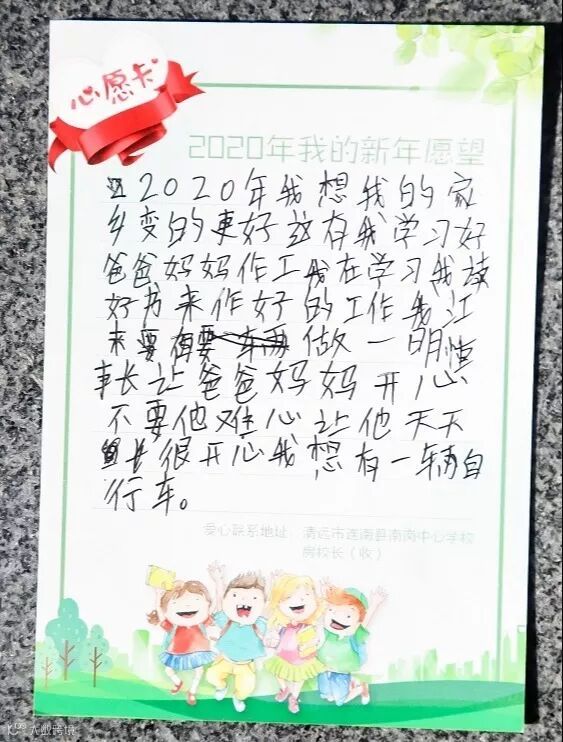 心愿卡
2020年我的新年愿望
2020年我想我的家
乡变的更好这有我学习好
爸爸妈妈作工我在学习我读
好书来作好的工作我江
来要做一明
事长让爸爸妈妈开心
不要他难心让他天天
很开心我想有一辆自
行车。
爱心联系地址：清远市连南县南岗中心学校
房校长（收）
大数跨境